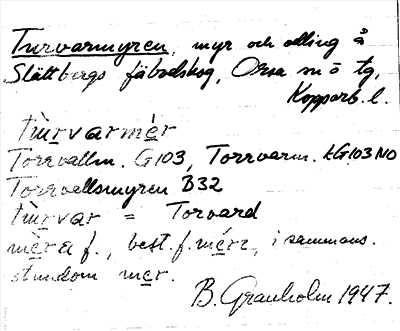 Turvarmyren, myr och odling å
Slättbergs fäbodskog, Orsa sn ö tg,
Kopparb. l.
tùrvarmèr
Torrvallm. G103, Torrvarm. LG103 NO
Torrvallsmyren B32
tùrvar = Torvard
mèra f., best. f. mérr, i sammans.
stundom mer.
B. Granholm 1947.